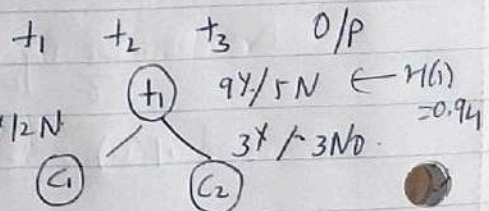 f1 f2 f3 O/P
f1 9Y/5N ← H(i)
=0.94
Y/2N 3Y/3No.
C1 C2